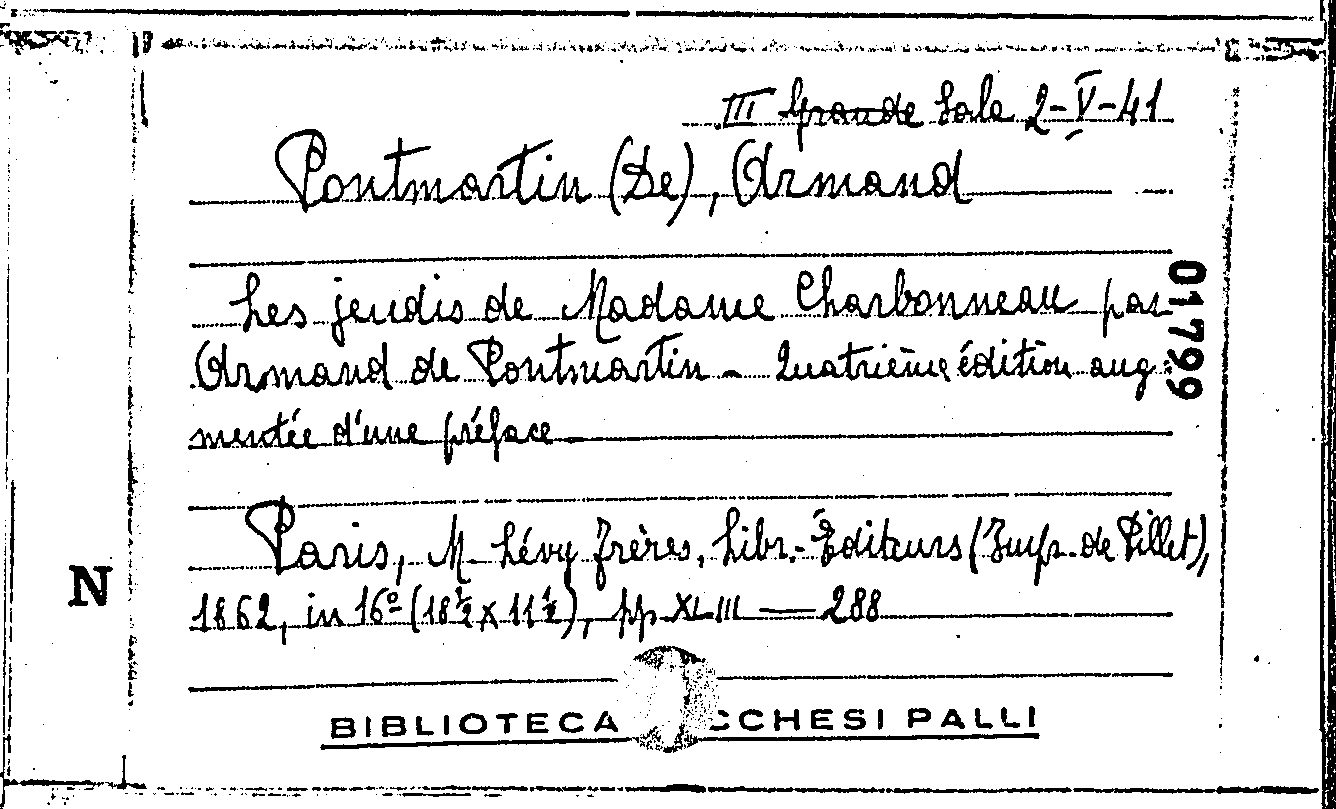 III Grande Sala 2-V-41
Pontmartin (De), Armand
Les jeudis de Madame Charbonneau par
Armand de Pontmartin - Quatrième édition aug-
mentée d'une préface -
01799
Paris, M. Lévy frères, Libr.-Éditeurs (Imp. de Pillet),
N
1862, in 16º (18 ½ x 11 ½), pp XLIII — 288
BIBLIOTECA CCHESI PALLI